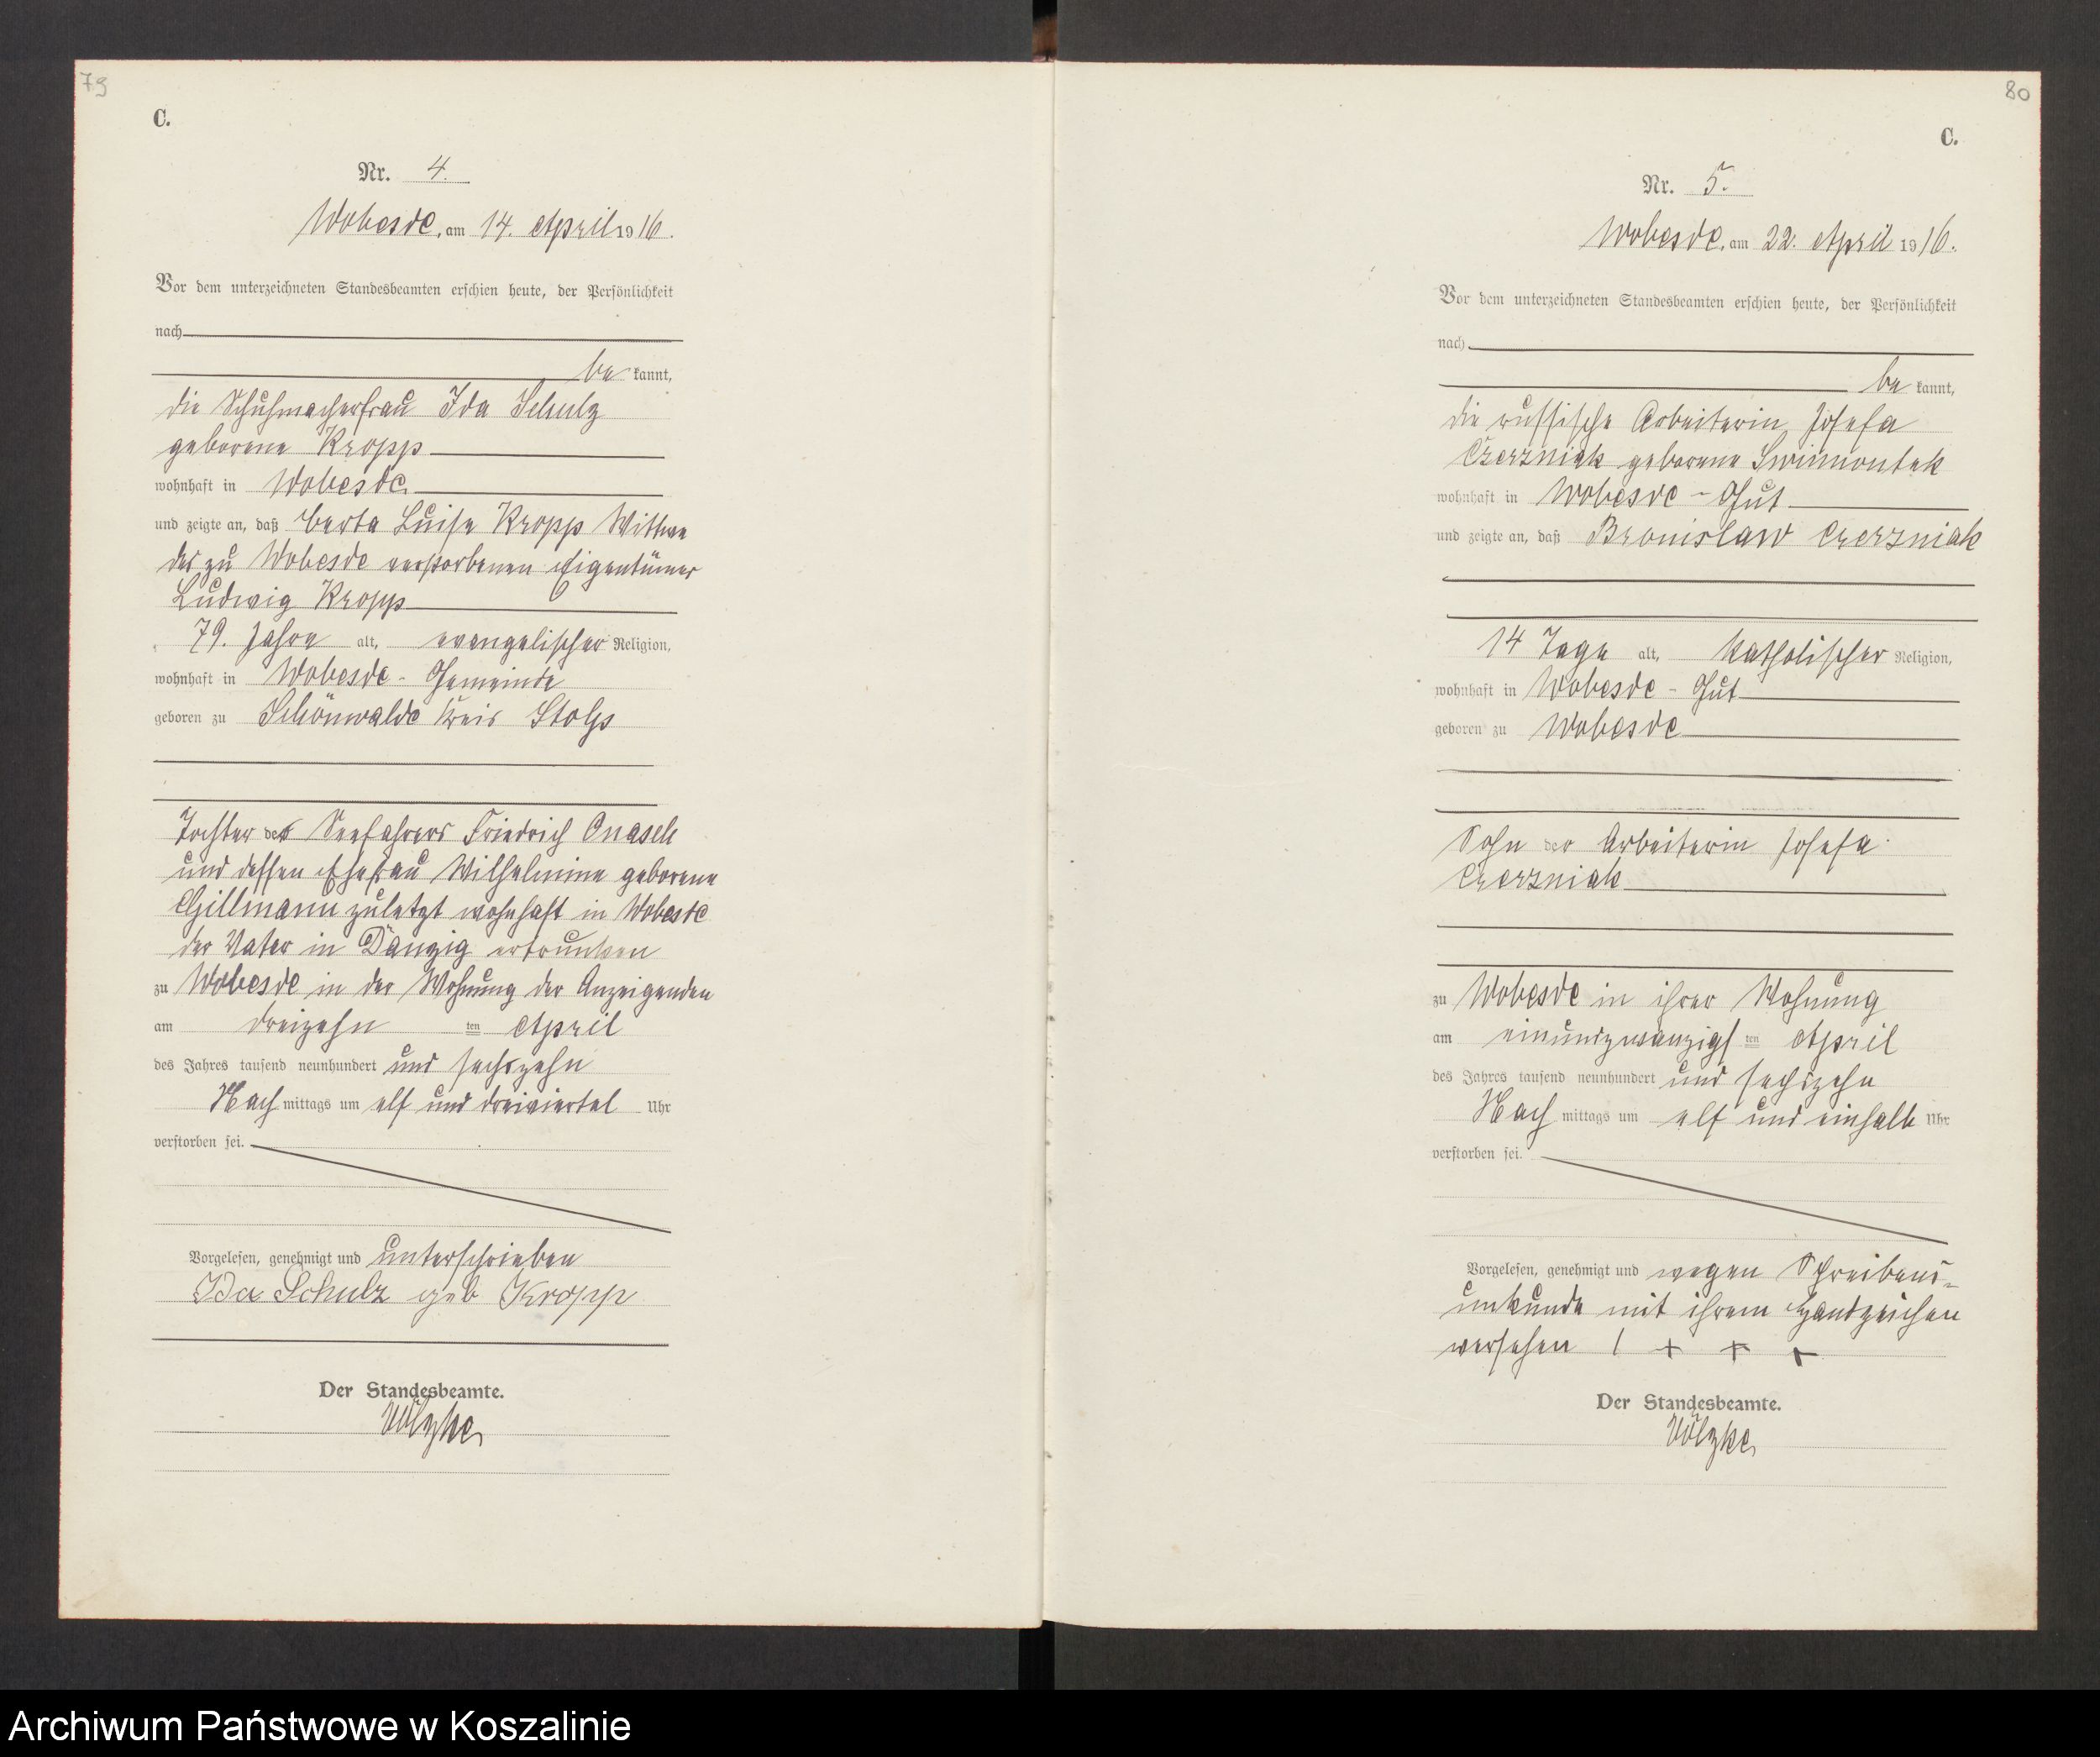 79
C.
Nr. 4.
Wobesde, am 14. April 1916.
Vor dem unterzeichneten Standesbeamten erschien heute, der Persönlichkeit
nach
be kannt,
die Schuhmacherfrau Ida Schulz
geborene Kropp
wohnhaft in Wobesde
und zeigte an, daß Berta Luise Kropp Wittwe
des zu Wobesde verstorbenen Eigentümer
Ludwig Kropp
79. Jahre alt, evangelischer Religion,
wohnhaft in Wobesde - Gemeinde
geboren zu Schönwalde Kreis Stolp
Tochter des Seefahrers Friedrich Onasch
und dessen Ehefrau Wilhelmine geborene
Gillmann zuletzt wohnhaft in Wobesde
der Vater in Danzig ertrunken
zu Wobesde in der Wohnung der Anzeigenden
am dreizehn ten April
des Jahres tausend neunhundert und sechszehn
Nach mittags um elf und dreiviertel Uhr
verstorben sei.
Vorgelesen, genehmigt und unterschrieben
Ida Schulz geb Kropp
Der Standesbeamte.
Völzke
80
C.
Nr. 5.
Wobesde, am 22. April 1916.
Vor dem unterzeichneten Standesbeamten erschien heute, der Persönlichkeit
nach
be kannt,
die russische Arbeiterin Josefa
Czerzniak geborene
wohnhaft in Wobesde - Gut
und zeigte an, daß Bronislaw Czerzniak
14 Tage alt, katholischer Religion,
wohnhaft in Wobesde - Gut
geboren zu Wobesde
Sohn der Arbeiterin Josefa
Czerzniak
zu Wobesde in ihrer Wohnung
am einundzwanzigs ten April
des Jahres tausend neunhundert und sechszehn
Nach mittags um elf und einhalb Uhr
verstorben sei.
Vorgelesen, genehmigt und wegen Schreibens-
unkunde mit ihrem Handzeichen
versehen | + + +
Der Standesbeamte.
Völzke
Archiwum Państwowe w Koszalinie